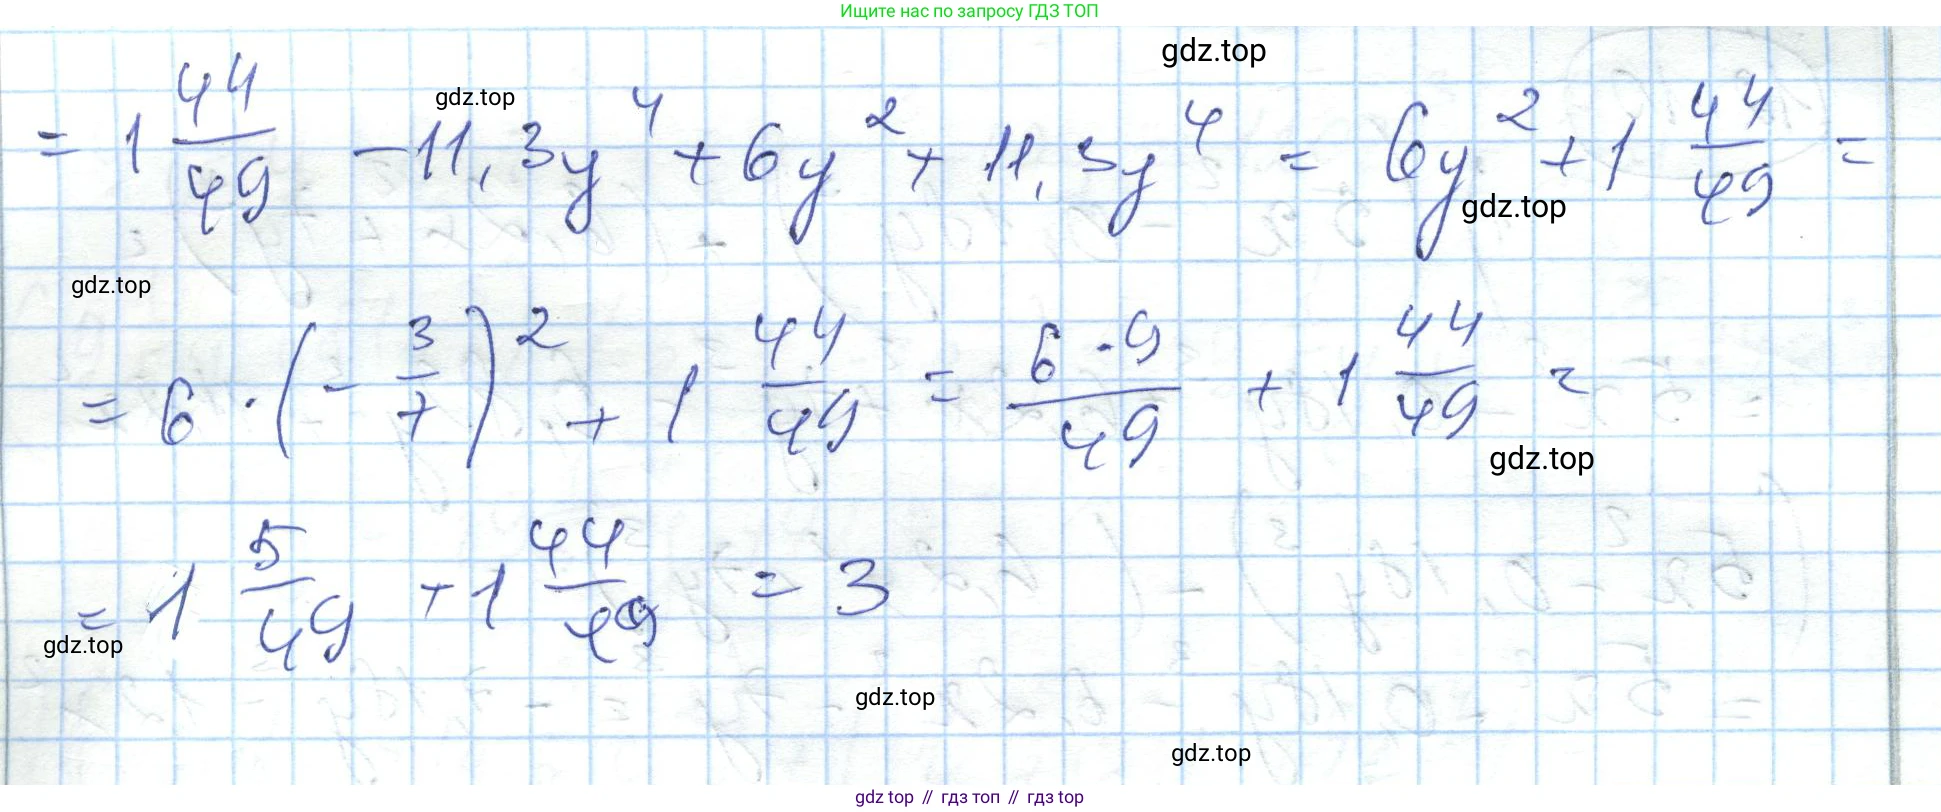 Ищите нас по запросу ГДЗ ТОП
gdz.top
= 1 44/49 - 11,3y^4 + 6y^2 + 11,3y^4 = 6y^2 + 1 44/49 =
gdz.top
gdz.top
gdz.top
= 6 · (- 3/7)^2 + 1 44/49 = 6·9/49 + 1 44/49 =
gdz.top
= 1 5/49 + 1 44/49 = 3
gdz.top
gdz.top
gdz.top
gdz top // гдз топ // гдз top